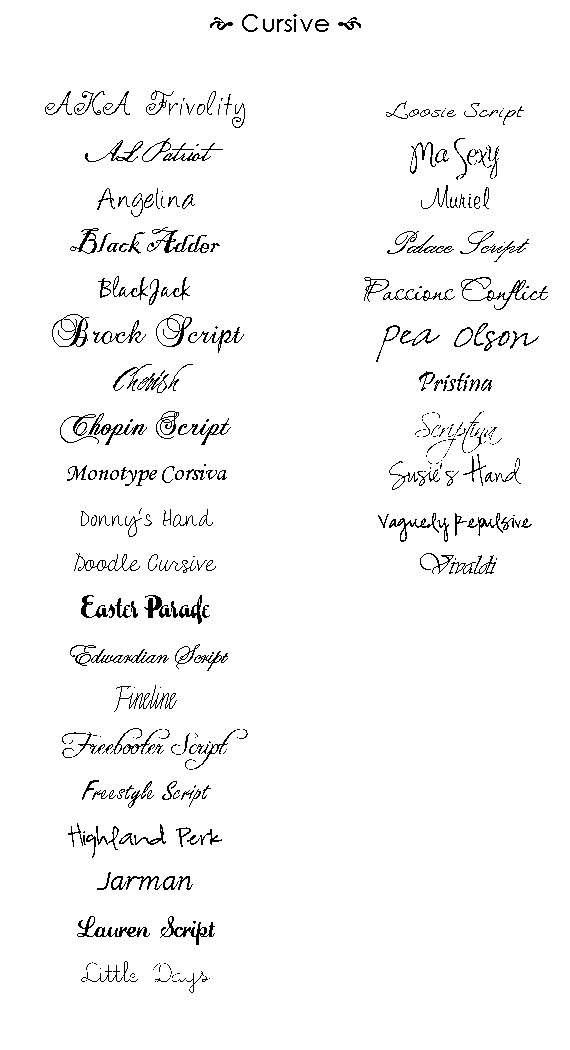 Cursive
AKA Frivolity
AL Patriot
Angelina
Black Adder
BlackJack
Brock Script
Cherish
Chopin Script
Monotype Corsiva
Donny's Hand
Doodle Cursive
Easter Parade
Edwardian Script
Fineline
Freebooter Script
Freestyle Script
Highland Perk
Jarman
Lauren Script
Little Days
Loosie Script
Ma Sexy
Muriel
Palace Script
Passions Conflict
Pea Olson
Pristina
Scriptina
Susie's Hand
Vaguely Repulsive
Vivaldi